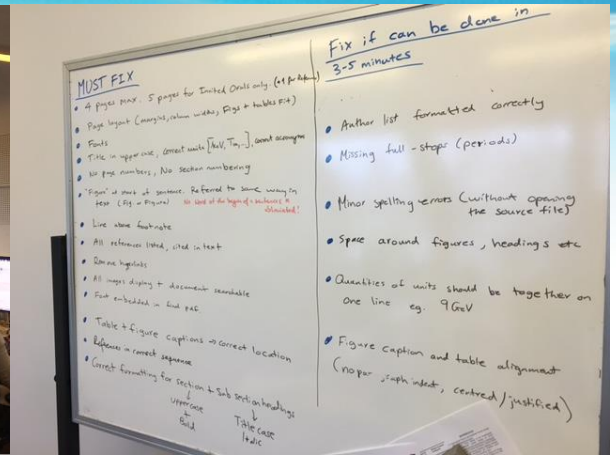 MUST FIX
• 4 pages max. 5 pages for Invited Orals only. (+1 for Refs)
• Page layout (margins, column widths, Figs + tables Fit)
• Fonts
• Title in uppercase, correct units [keV, ], acronyms
• No page numbers, No section numbering
• "Figure" at start of sentence. Referred to same way in
text (Fig or Figure)
• Line above footnote
• All references listed, cited in text
• Remove hyperlinks
• All images display + document searchable
• Font embedded in final pdf.
• Table + figure captions → correct location
• References in correct sequence
• Correct formatting for section + Sub section headings
↓ ↓
uppercase Title case
+ Italic
Bold
Fix if can be done in
3-5 minutes
...
• Author list formatted correctly
• Missing full-stops (periods)
• Minor spelling errors (without opening
the source file)
• Space around figures, headings etc
• Quantities of units should be together on
one line eg. 9 GeV
• Figure caption and table alignment
(no par graph indent, centred / justified)